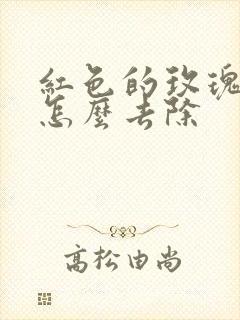 紅色的玫瑰
怎麼去除
高松由尚